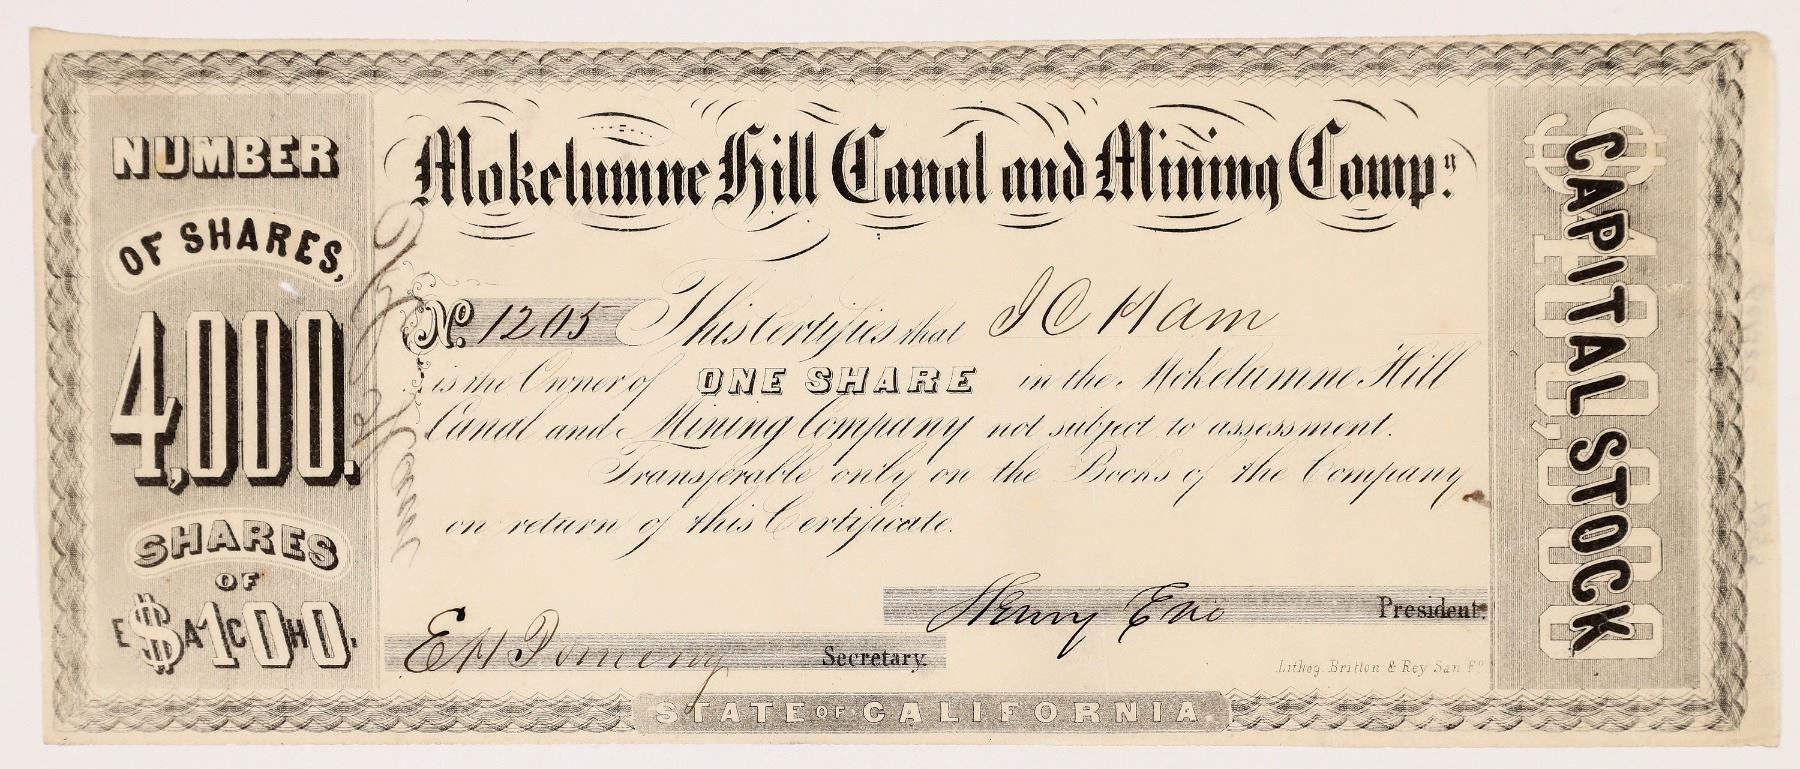 NUMBER
OF SHARES,
4,000.
SHARES
OF
$100.
EACH
Mokelumne Hill Canal and Mining Compy.
No. 1205 This Certifies that J C Ham
is the Owner of ONE SHARE in the Mokelumne Hill
Canal and Mining Company not subject to assessment.
Transferable only on the Books of the Company
on return of this Certificate.
Henry Eno President.
E H Pomeroy Secretary.
Lithog. Britton & Rey San Fo.
STATE OF CALIFORNIA.
CAPITAL STOCK
$400,000
Ham